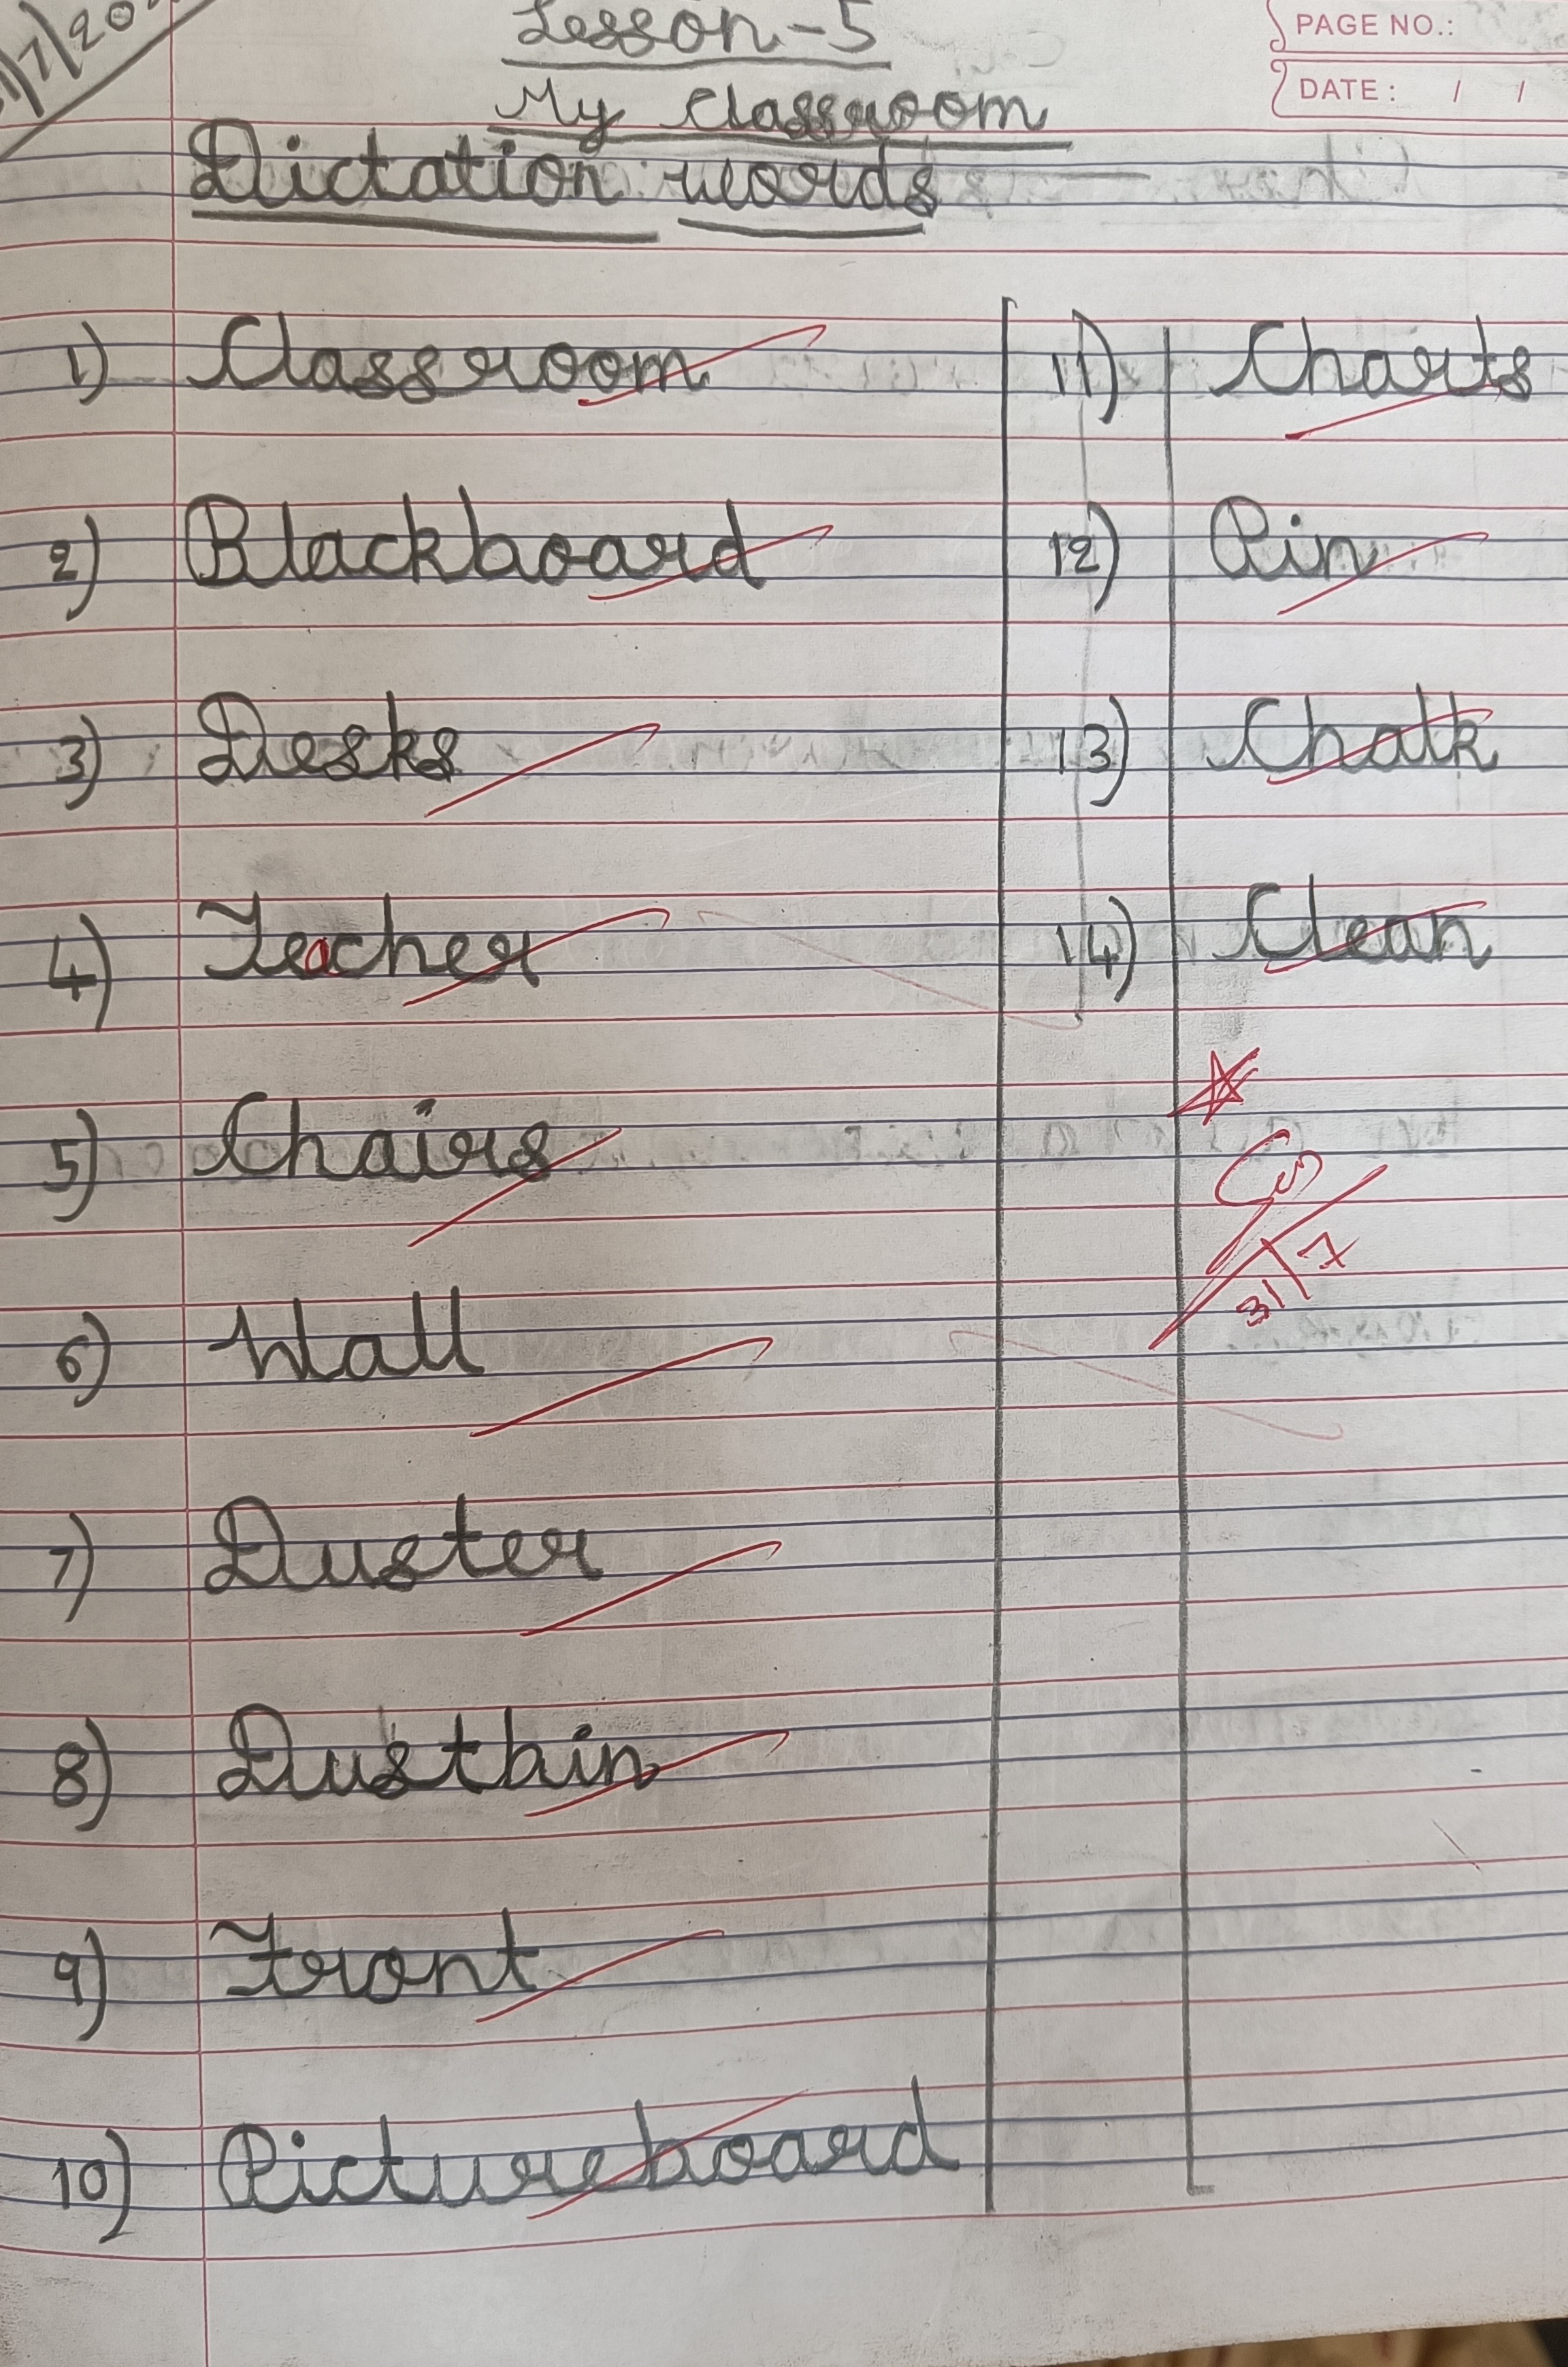 Lesson-5
PAGE NO.:
DATE: / /
My Classroom
Dictation words
1) Classroom
2) Blackboard
3) Desks
4) Teacher
5) Chairs
6) Wall
7) Duster
8) Dustbin
9) Front
10) Pictureboard
11) Charts
12) Pin
13) Chalk
14) Clean
31/7